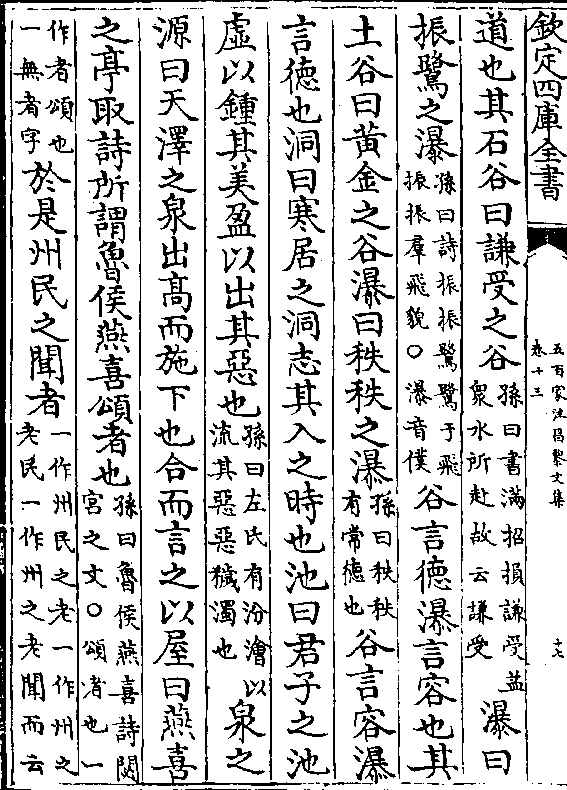 欽定四庫全書
五百家注昌黎文集
卷十三
十七
道也其石谷曰謙受之谷
孫曰書滿招損謙受益
衆水所赴故云謙受
瀑曰
振鷺之瀑
孫曰詩振振鷺鷺于飛
振振羣飛貌○瀑音僕
谷言德瀑言容也其
土谷曰黄金之谷瀑曰秩秩之瀑
孫曰秩秩
有常德也
谷言容瀑
言德也洞曰寒居之洞志其入之時也池曰君子之池
虚以鍾其美盈以出其惡也
孫曰左氏有汾澮以
流其惡惡穢濁也
泉之
源曰天澤之泉出髙而施下也合而言之以屋曰燕喜
之亭取詩所謂魯侯燕喜頌者也
孫曰魯侯燕喜詩閟
宫之文○頌者也一
作者頌也
一無者字
於是州民之聞者
一作州民之老一作州之
老民一作州之老聞而云